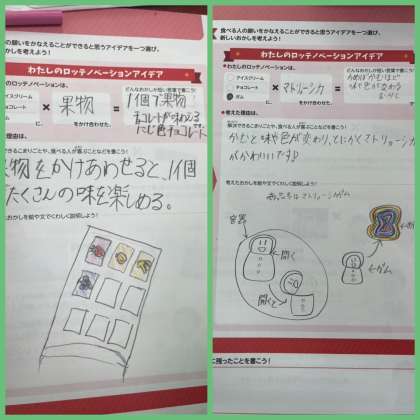 の願いをかなえることができると思うアイデアを一つ選び、
おかしを考えよう！
わたしのロッテノベーションアイデア
わたしのロッテノベーションは、
どんなおかしか短い言葉で書こう！
アイスクリーム
チョコレート
ガム
に、
×
果物
をかけ合わせた、
＝
1個で果物
チョコレートが味わえる
にじ色チョコレート
です。
理由は、
食べる人が喜ぶことなどを書こう！
物をかけあわせると、1個
たくさんの味を楽しめる。
おかしを絵や文でくわしく説明しよう！
食べる人の願いをかなえることができると思うアイデアを一つ選び、
新しいおかしを考えよう！
わたしのロッテノベーションアイデア
わたしのロッテノベーションは、
どんなおかしか短い言葉で書こう！
アイスクリーム
チョコレート
ガム
に、
×
マトリョーシカ
をかけ合わせた、
＝
かめばかむほど
味や色が変わる
理由は、
解決できるこまりごとや、食べる人が喜ぶことなどを書こう！
かむと味や色が変わり、とにかくマトリョーシカ
がかわいいです♪
考えたおかしを絵や文でくわしく説明しよう！
マトリョーシカガム
容器
開く
開くと
ガム
に残ったことを書こう！